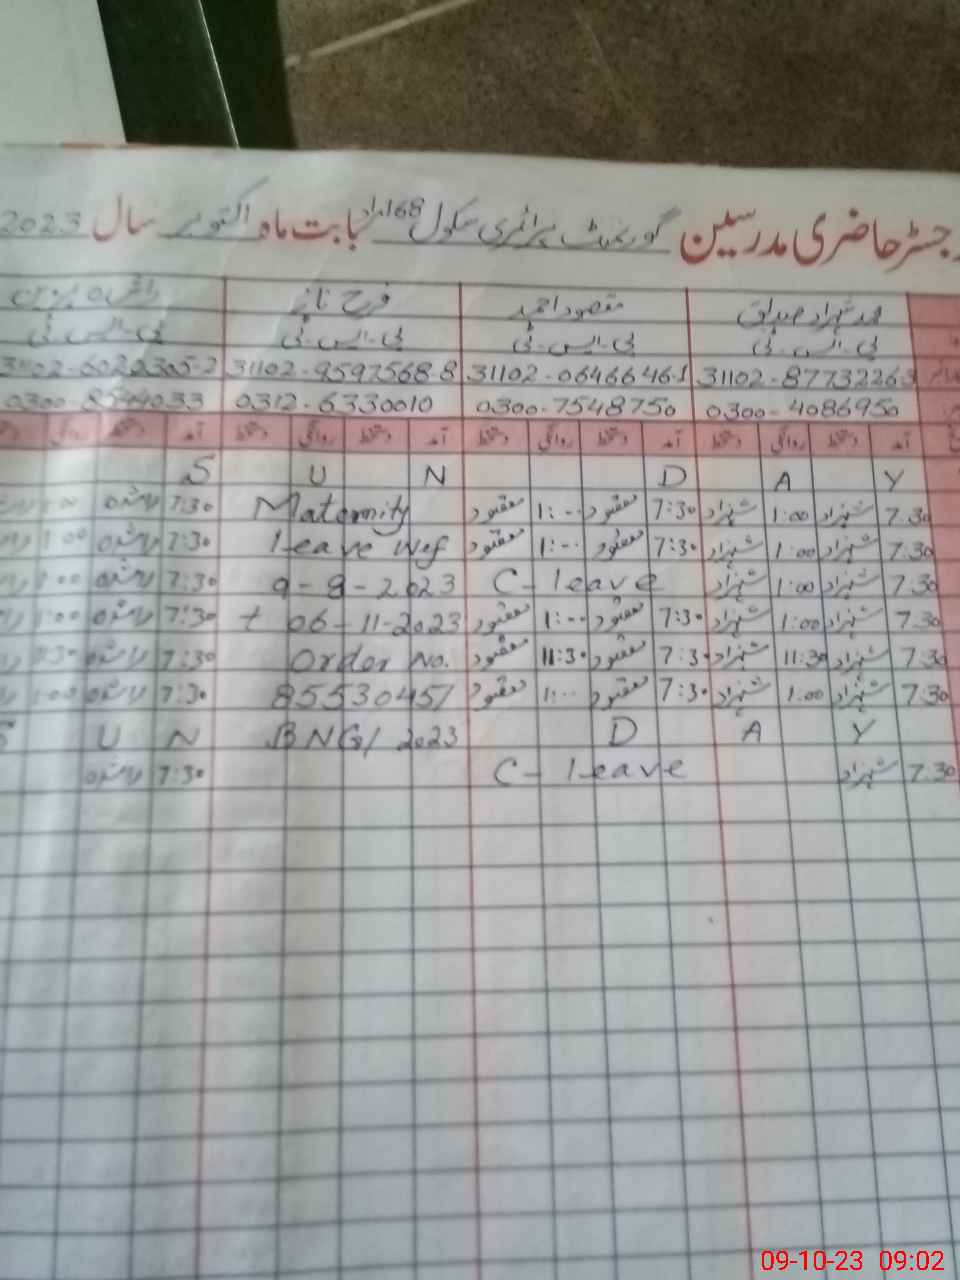 رجسٹر حاضری مدرسین گورنمنٹ پرائمری سکول 168 مراد بابت ماہ اکتوبر سال 2023
محمد شہزاد صدیق مقصود احمد فرح ناز
پی-ایس-ٹی پی-ایس-ٹی پی-ایس-ٹی پی-ایس-ٹی
31102-87732263 31102-0646646-1 31102-9597568-8 31102-6022305-2
0300-4086950 0300-7548750 0312-6330010 0300-8544033
آمد دستخط روانگی دستخط آمد دستخط روانگی دستخط آمد دستخط روانگی دستخط آمد دستخط روانگی
S U N D A Y
7.30 شہزاد 1:00 شہزاد 7:30 مقصود 1:00 مقصود Maternity 7:30
7.30 شہزاد 1:00 شہزاد 7:30 مقصود 1:00 مقصود leave wef 7:30 1:00
7.30 شہزاد 1:00 شہزاد C-leave 9-8-2023 7:30 1:00
7.30 شہزاد 1:00 شہزاد 7:30 مقصود 1:00 مقصود t 06-11-2023 7:30 1:00
7.30 شہزاد 11:30 شہزاد 7:30 مقصود 11:30 مقصود Order No. 7:30 11:30
7.30 شہزاد 1:00 شہزاد 7:30 مقصود 1:00 مقصود 85530451 7:30 1:00
S U N BNG/2023 D A Y
7.30 شہزاد C-leave 7:30
09-10-23 09:02